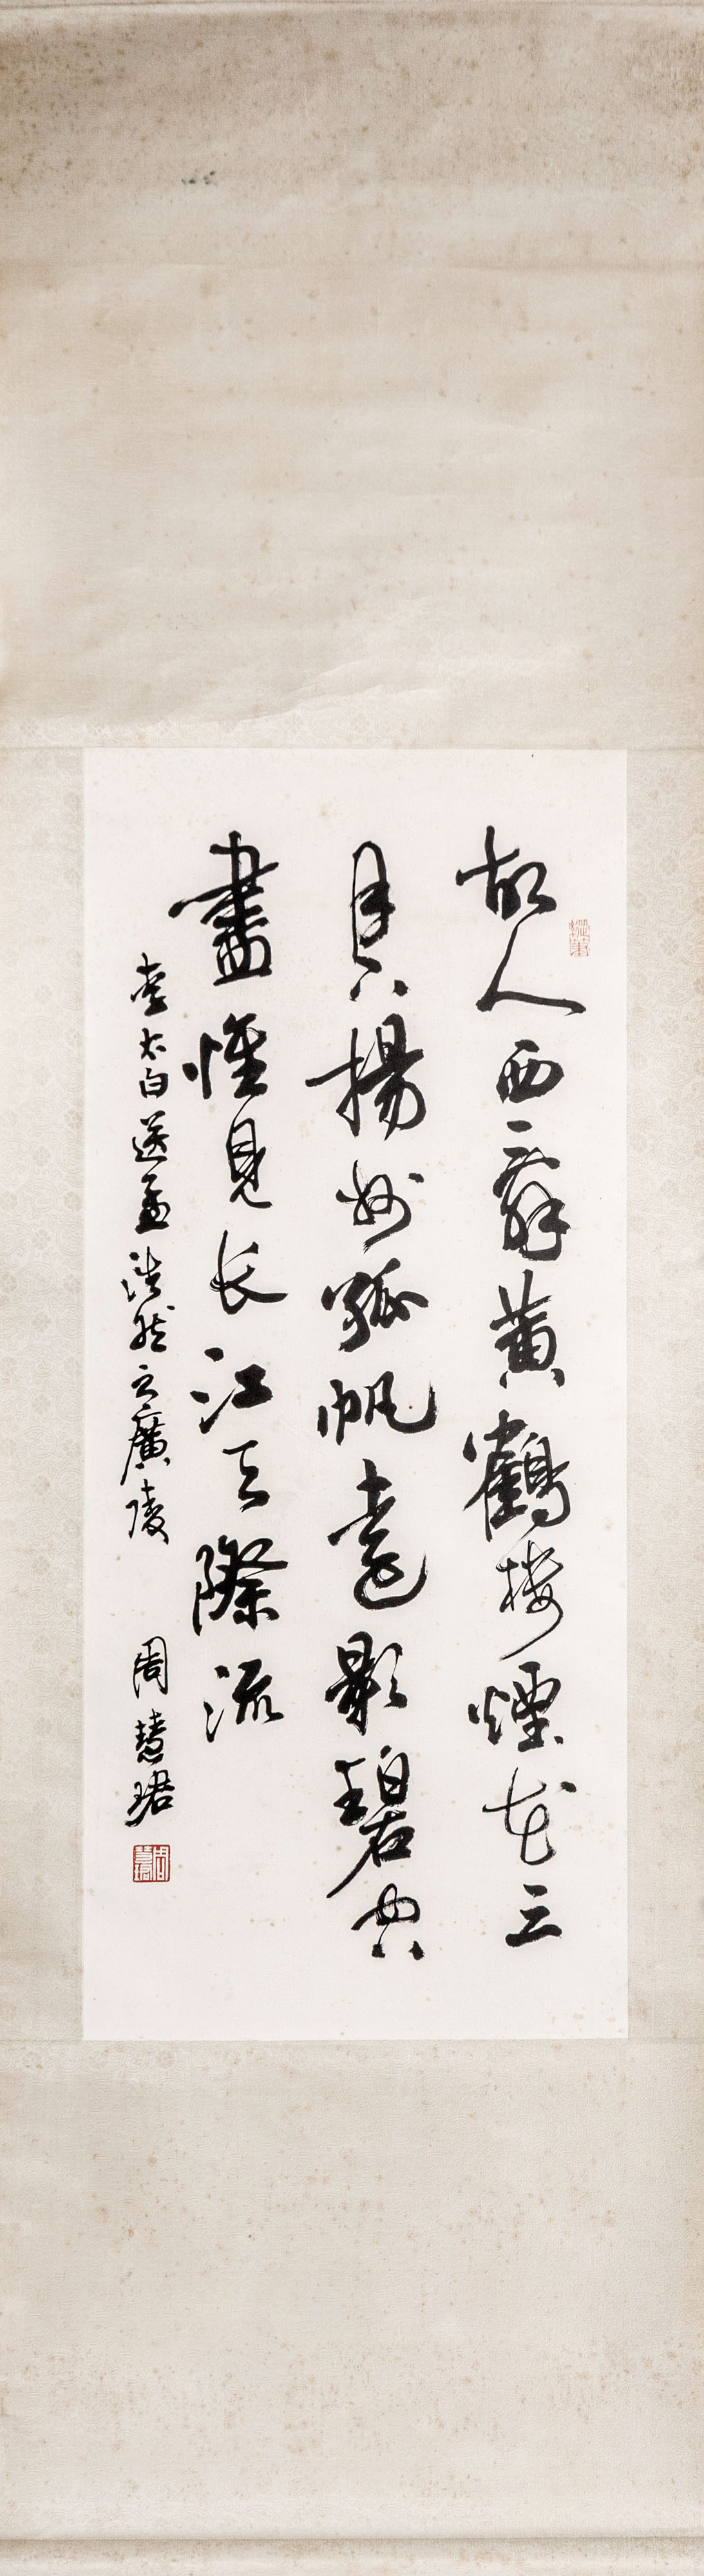 故人西辭黄鶴樓煙花三
月下揚州孤帆遠影碧空
盡惟見長江天際流
李太白送孟浩然之廣陵 周慧珺
周慧珺